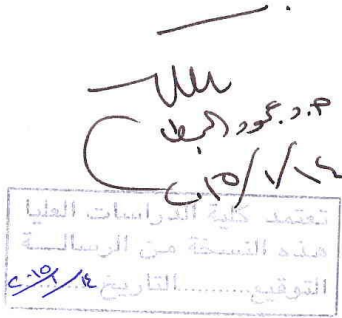 م.د. محمود
٢٠١٥/١/١٤
تعتمد كلية الدراسات العليا
هذه النسخة من الرسالــة
التوقيع............التاريخ ١٤/١/٢٠١٥